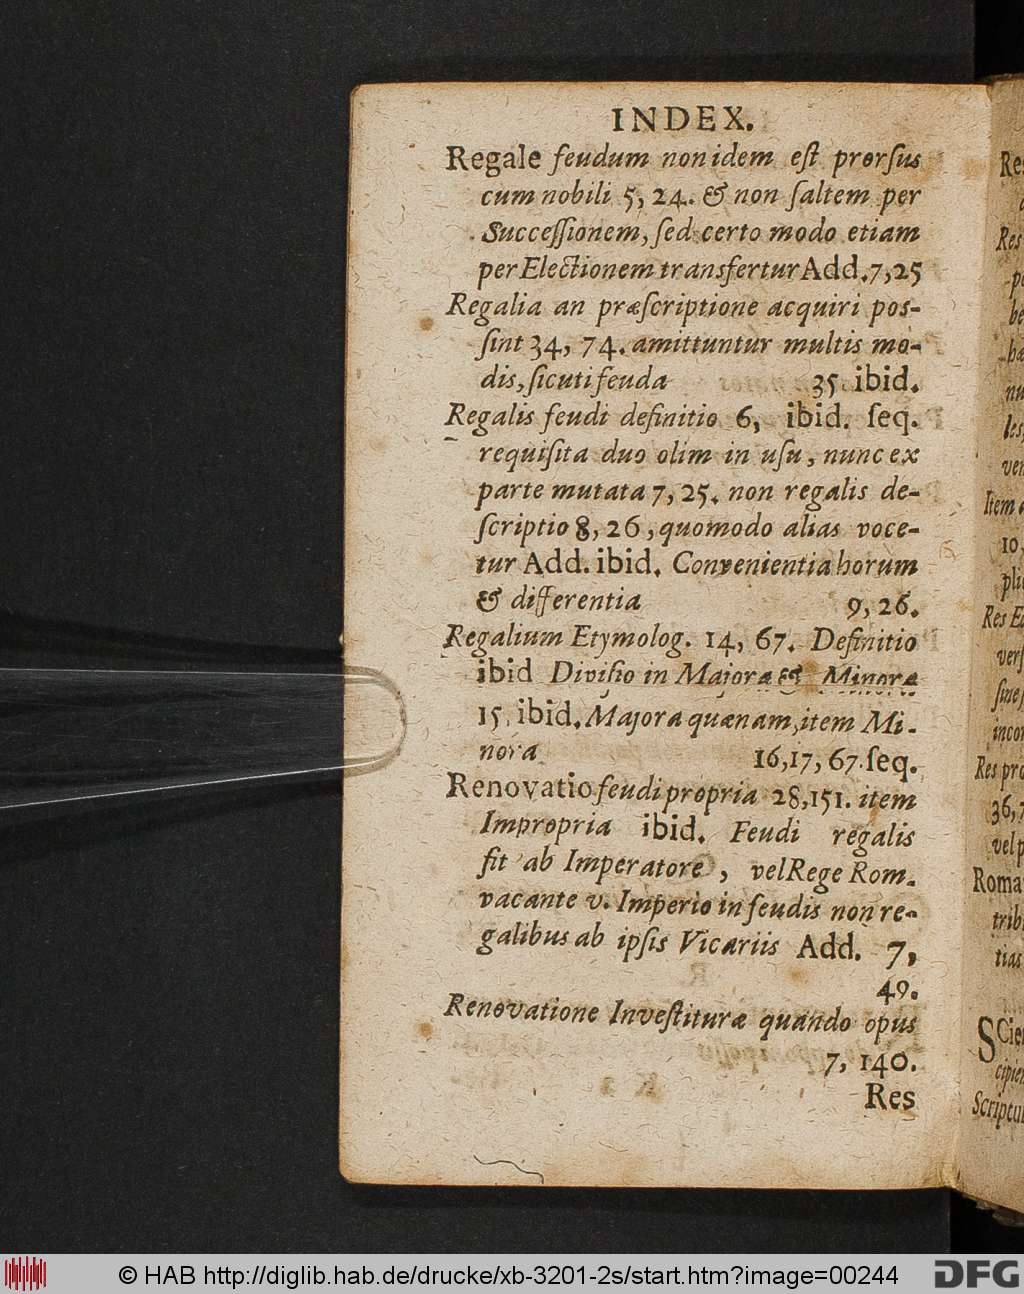 INDEX.
Regale feudum non idem eſt prorſus
cum nobili 5, 24. & non ſaltem per
Succeſſionem, ſed certo modo etiam
per Electionem transfertur Add. 7, 25
Regalia an præſcriptione acquiri poſ-
ſint 34, 74. amittuntur multis mo-
dis, ſicuti feuda 35. ibid.
Regalis feudi definitio 6, ibid. ſeq.
requiſita duo olim in uſu, nunc ex
parte mutata 7, 25. non regalis de-
ſcriptio 8, 26, quomodo alias voce-
tur Add. ibid. Convenientia horum
& differentia 9, 26.
Regalium Etymolog. 14, 67. Definitio
ibid Diviſio in Majora & Minora
15. ibid. Majora quænam, item Mi-
nora 16, 17, 67. ſeq.
Renovatio feudi propria 28, 151. item
Impropria ibid. Feudi regalis
fit ab Imperatore, vel Rege Rom.
vacante v. Imperio in feudis non re-
galibus ab ipſis Vicariis Add. 7,
49.
Renovatione Inveſtituræ quando opus
7, 140.
Res
Res
Res
les,
Item
10,
pli
Res
verſ
incor
Res pro
36, 7
vel p
Roma
trib
tias
SCie
cipie
Scriptu
© HAB http://diglib.hab.de/drucke/xb-3201-2s/start.htm?image=00244
DFG